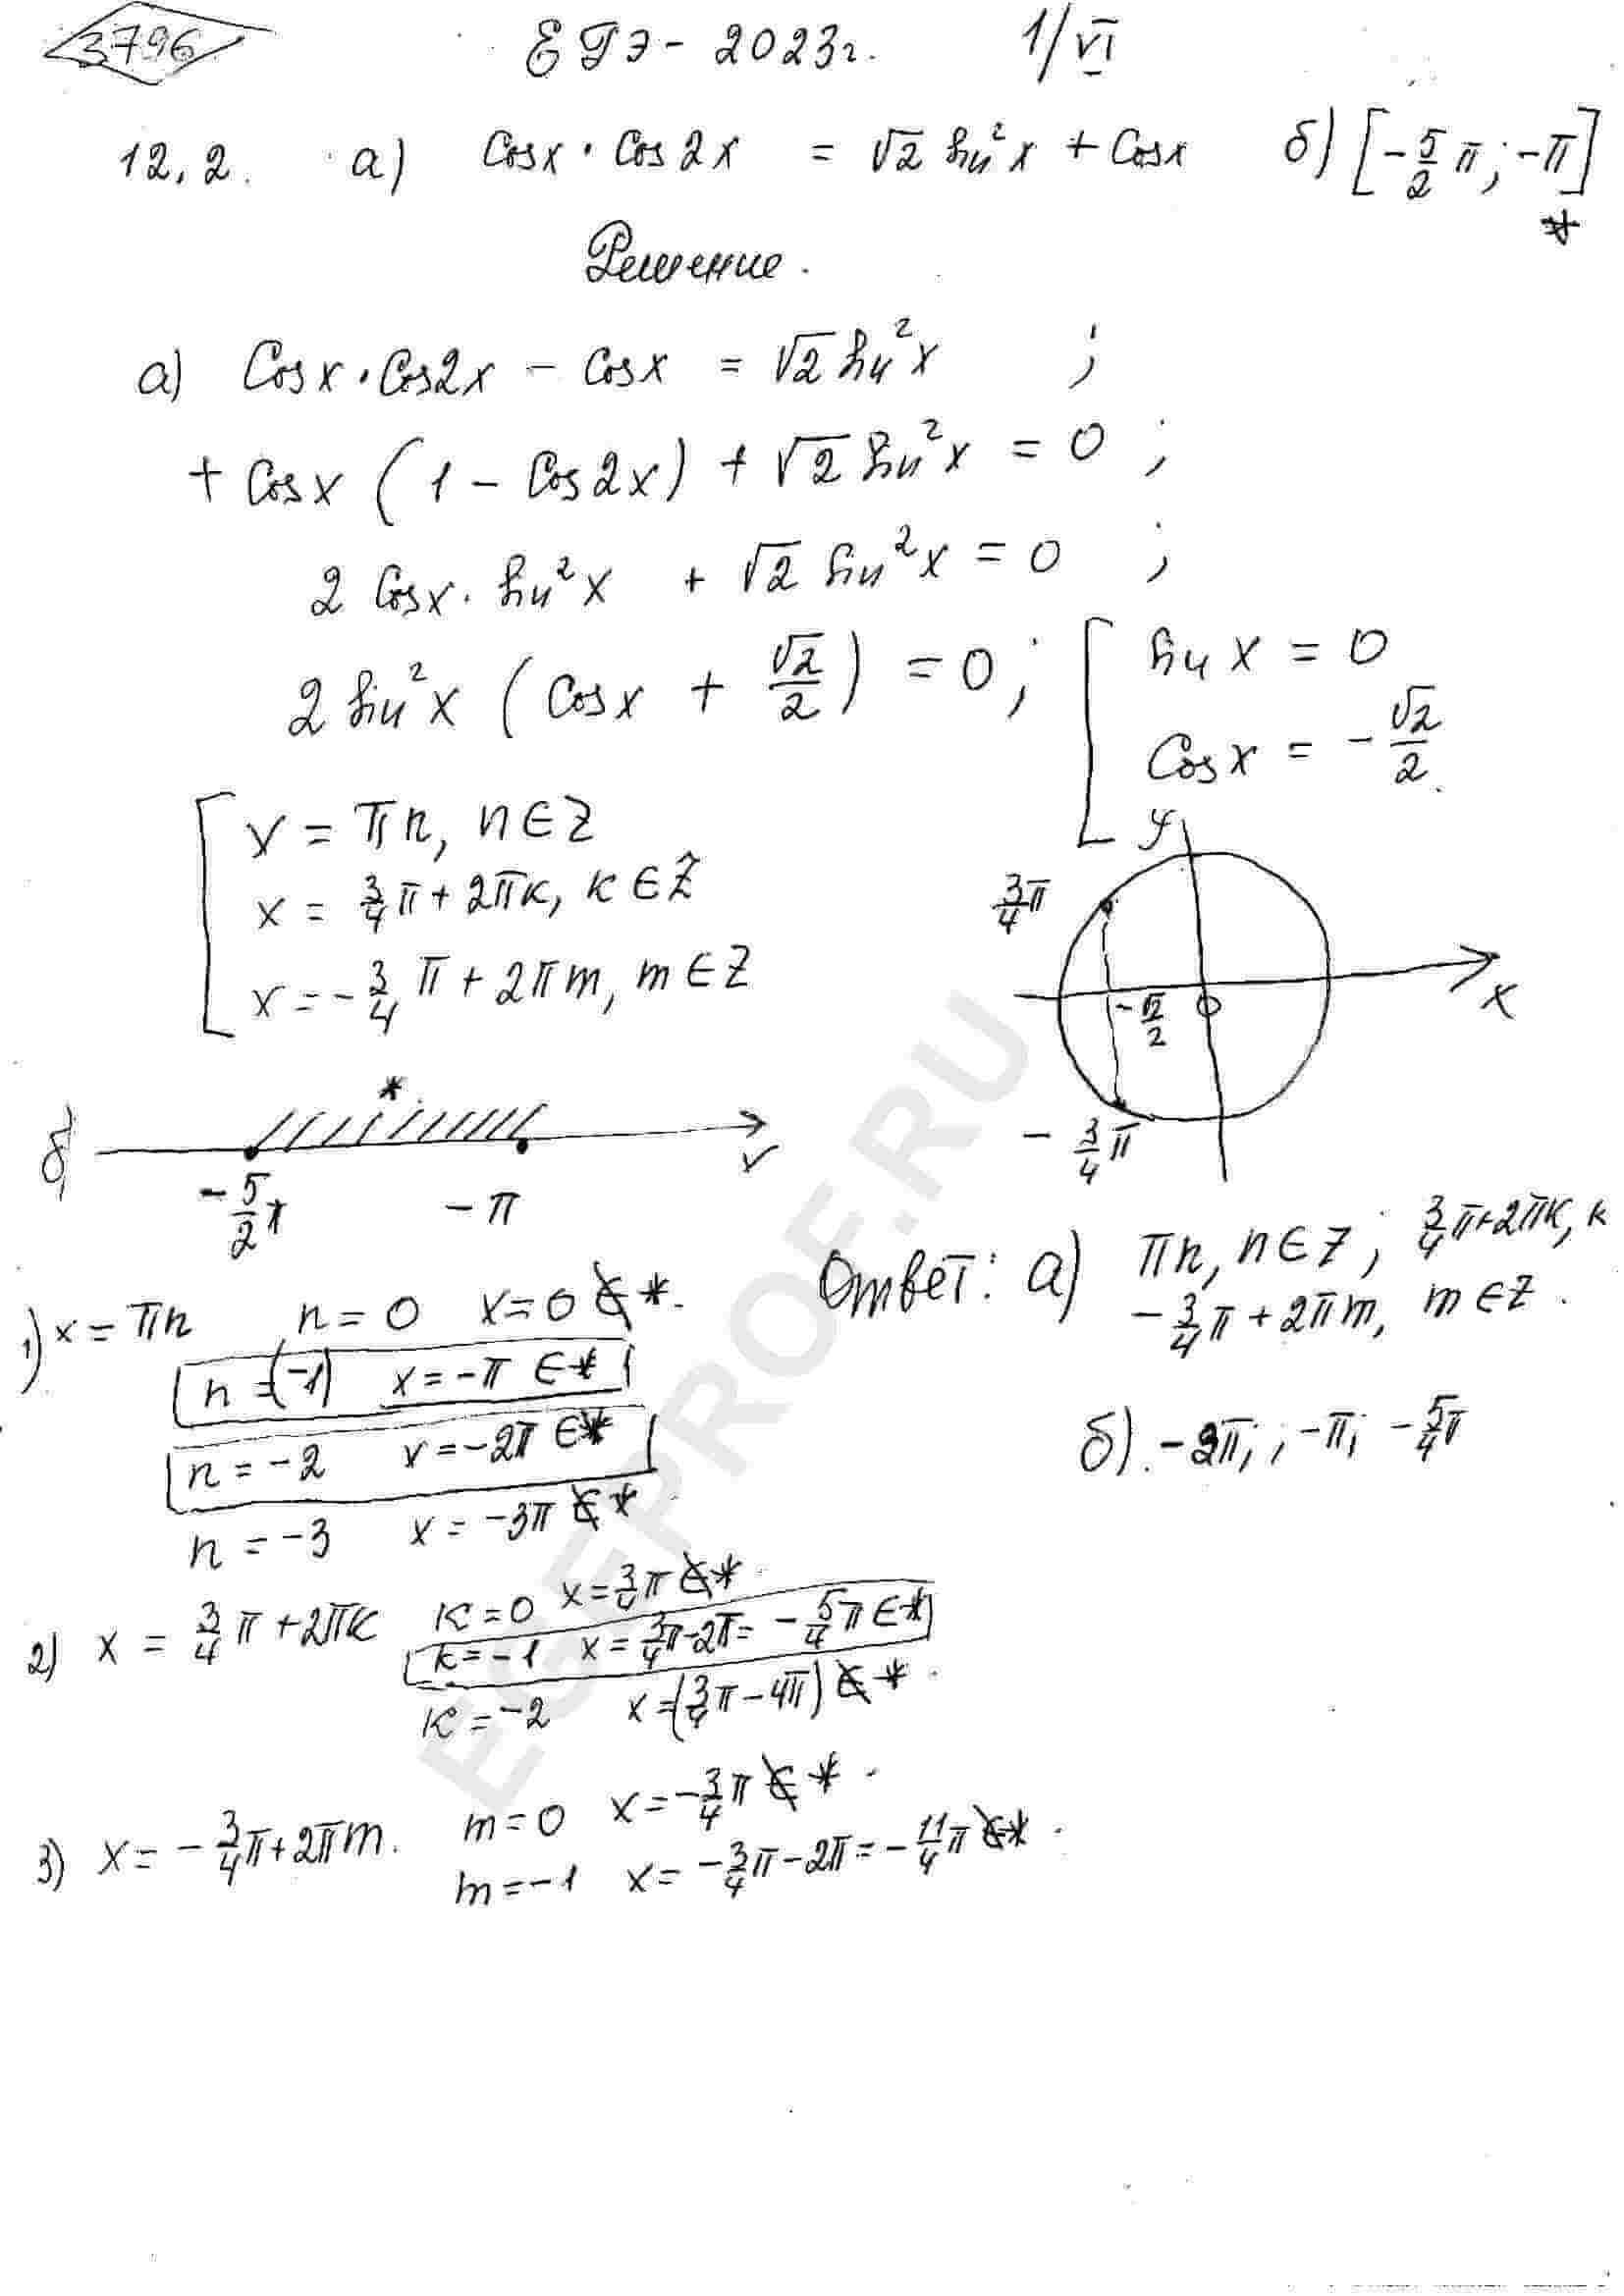 3796 ЕГЭ - 2023г. 1/VI
12,2. а) Cosx · Cos2x = √2 sin²x + Cosx б) [-5/2 π; -π] *
Решение.
а) Cosx · Cos2x - cosx = √2 sin²x ;
+ Cosx (1 - Cos2x) + √2 sin²x = 0 ;
2 Cosx · sin²x + √2 sin²x = 0 ;
2 sin²x (Cosx + √2/2) = 0 ; [ sin x = 0
Cosx = - √2/2.
x = πn, n∈Z
x = 3/4 π + 2πk, k∈Z
x = - 3/4 π + 2πm, m∈Z
y
3/4 π
- √2/2 0 x
- 3/4 π
б) * x
- 5/2 π - π
Ответ: а) πn, n∈Z; 3/4 π+2πk, k
- 3/4 π + 2πm, m∈Z.
б). -2π; ; -π; - 5/4 π
1) x = πn n = 0 x = 0 ∉ *.
n = (-1) x = -π ∈ *
n = -2 x = -2π ∈ *
n = -3 x = -3π ∉ *
2) x = 3/4 π + 2πk k = 0 x = 3/4 π ∉ *.
k = -1 x = 3/4 π - 2π = - 5/4 π ∈ *
k = -2 x = (3/4 π - 4π) ∉ *.
3) x = - 3/4 π + 2πm. m = 0 x = - 3/4 π ∉ *.
m = -1 x = - 3/4 π - 2π = - 11/4 π ∉ *.
EGEPROF.RU